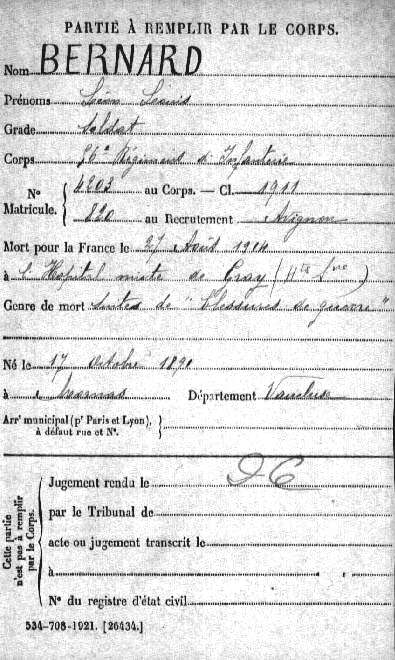 PARTIE À REMPLIR PAR LE CORPS.
Nom BERNARD
Prénoms Léon Louis
Grade soldat
Corps Régiment d'Infanterie
N° Matricule. 4203 au Corps. — Cl. 1911
820 au Recrutement Avignon
Mort pour la France le 27 Août 1914
à l'Hopital mixte de Gray (Hte Sne)
Genre de mort Suites de "Blessures de guerre"
Né le 17 octobre 1890
à Mornas Département Vaucluse
Arrᵗ municipal (pʳ Paris et Lyon),
à défaut rue et N°.
Cette partie n'est pas à remplir par le Corps.
Jugement rendu le
par le Tribunal de
acte ou jugement transcrit le
à
N° du registre d'état civil
534-708-1921. [26434.]